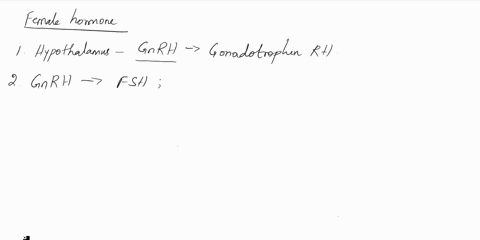 Female hormone
1. Hypothalamus – GnRH → Gonadotrophin RH
2. GnRH → FSH ;